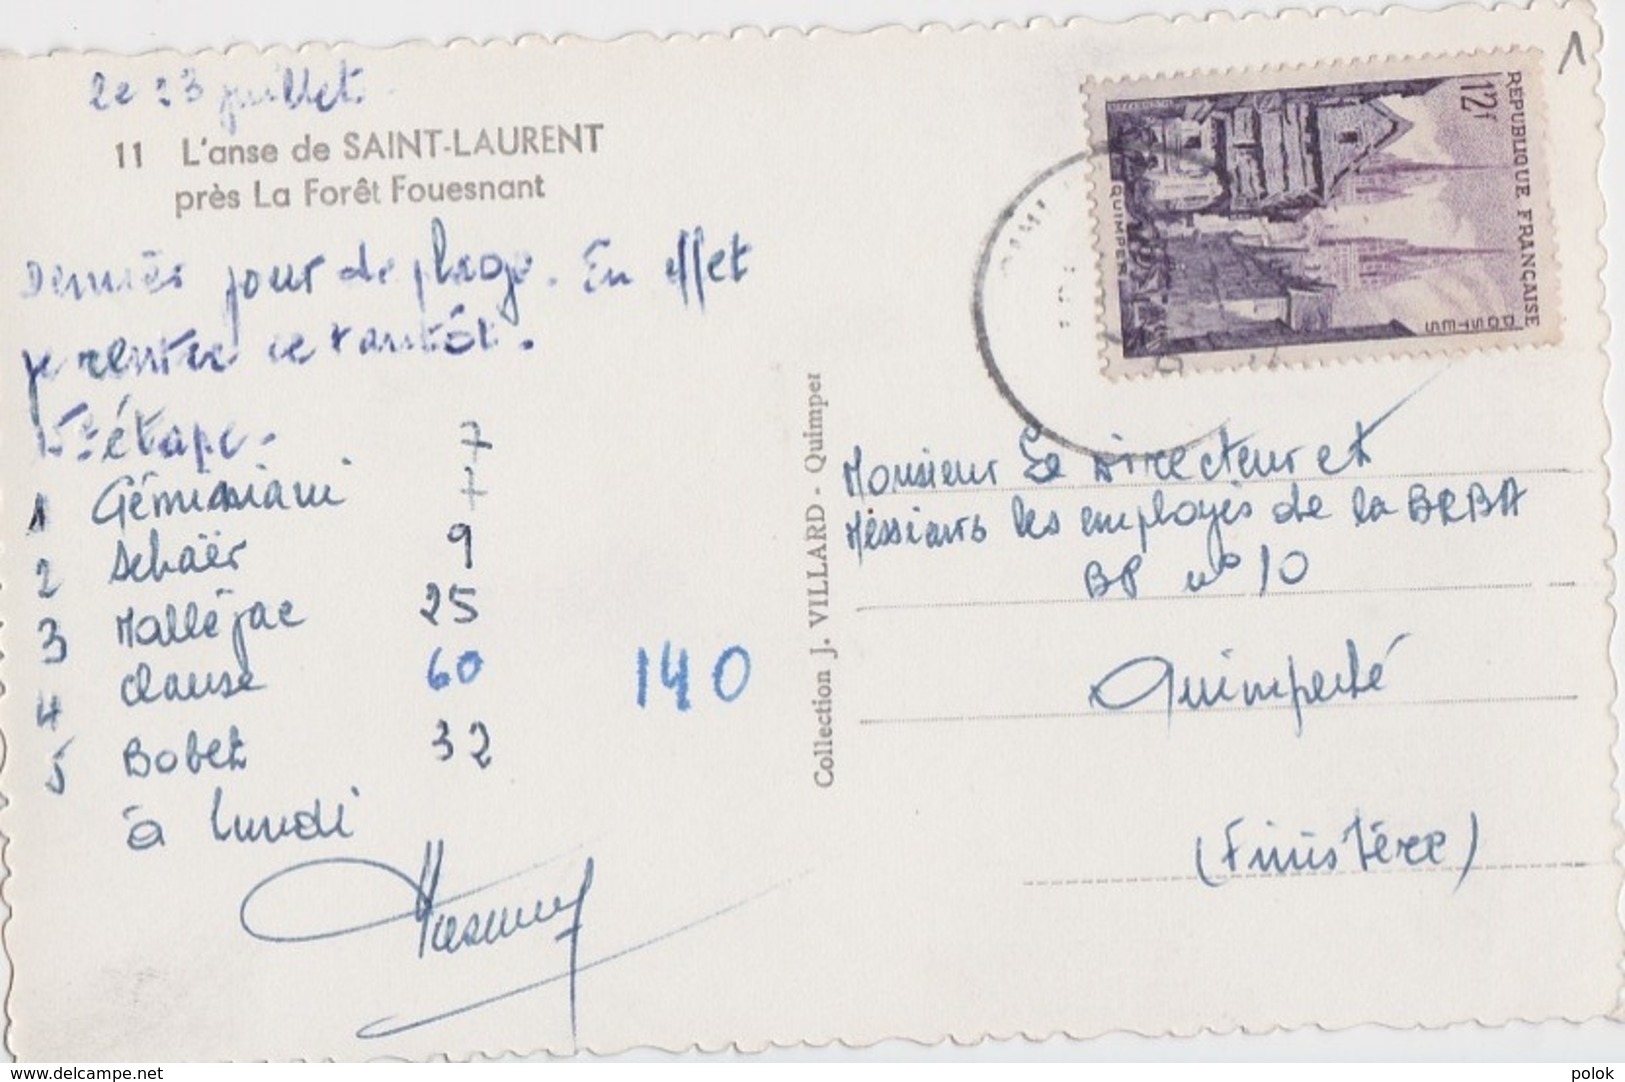 le 23 juillet.
11 L'anse de SAINT-LAURENT
près La Forêt Fouesnant
Dernier jour de plage. En effet
je rentre ce tantôt.
15e étape.
7
1 Géminiani 7
2 Schaër 9
3 Malléjac 25
4 Clause 60
5 Bobet 32
140
à lundi
Collection J. VILLARD - Quimper
1
REPUBLIQUE FRANÇAISE
12f
POSTES
QUIMPER
Monsieur Le Directeur et
Messieurs les employés de la BRBA
BP n° 10
Quimperlé
(Finistère)
www.delcampe.net
polok